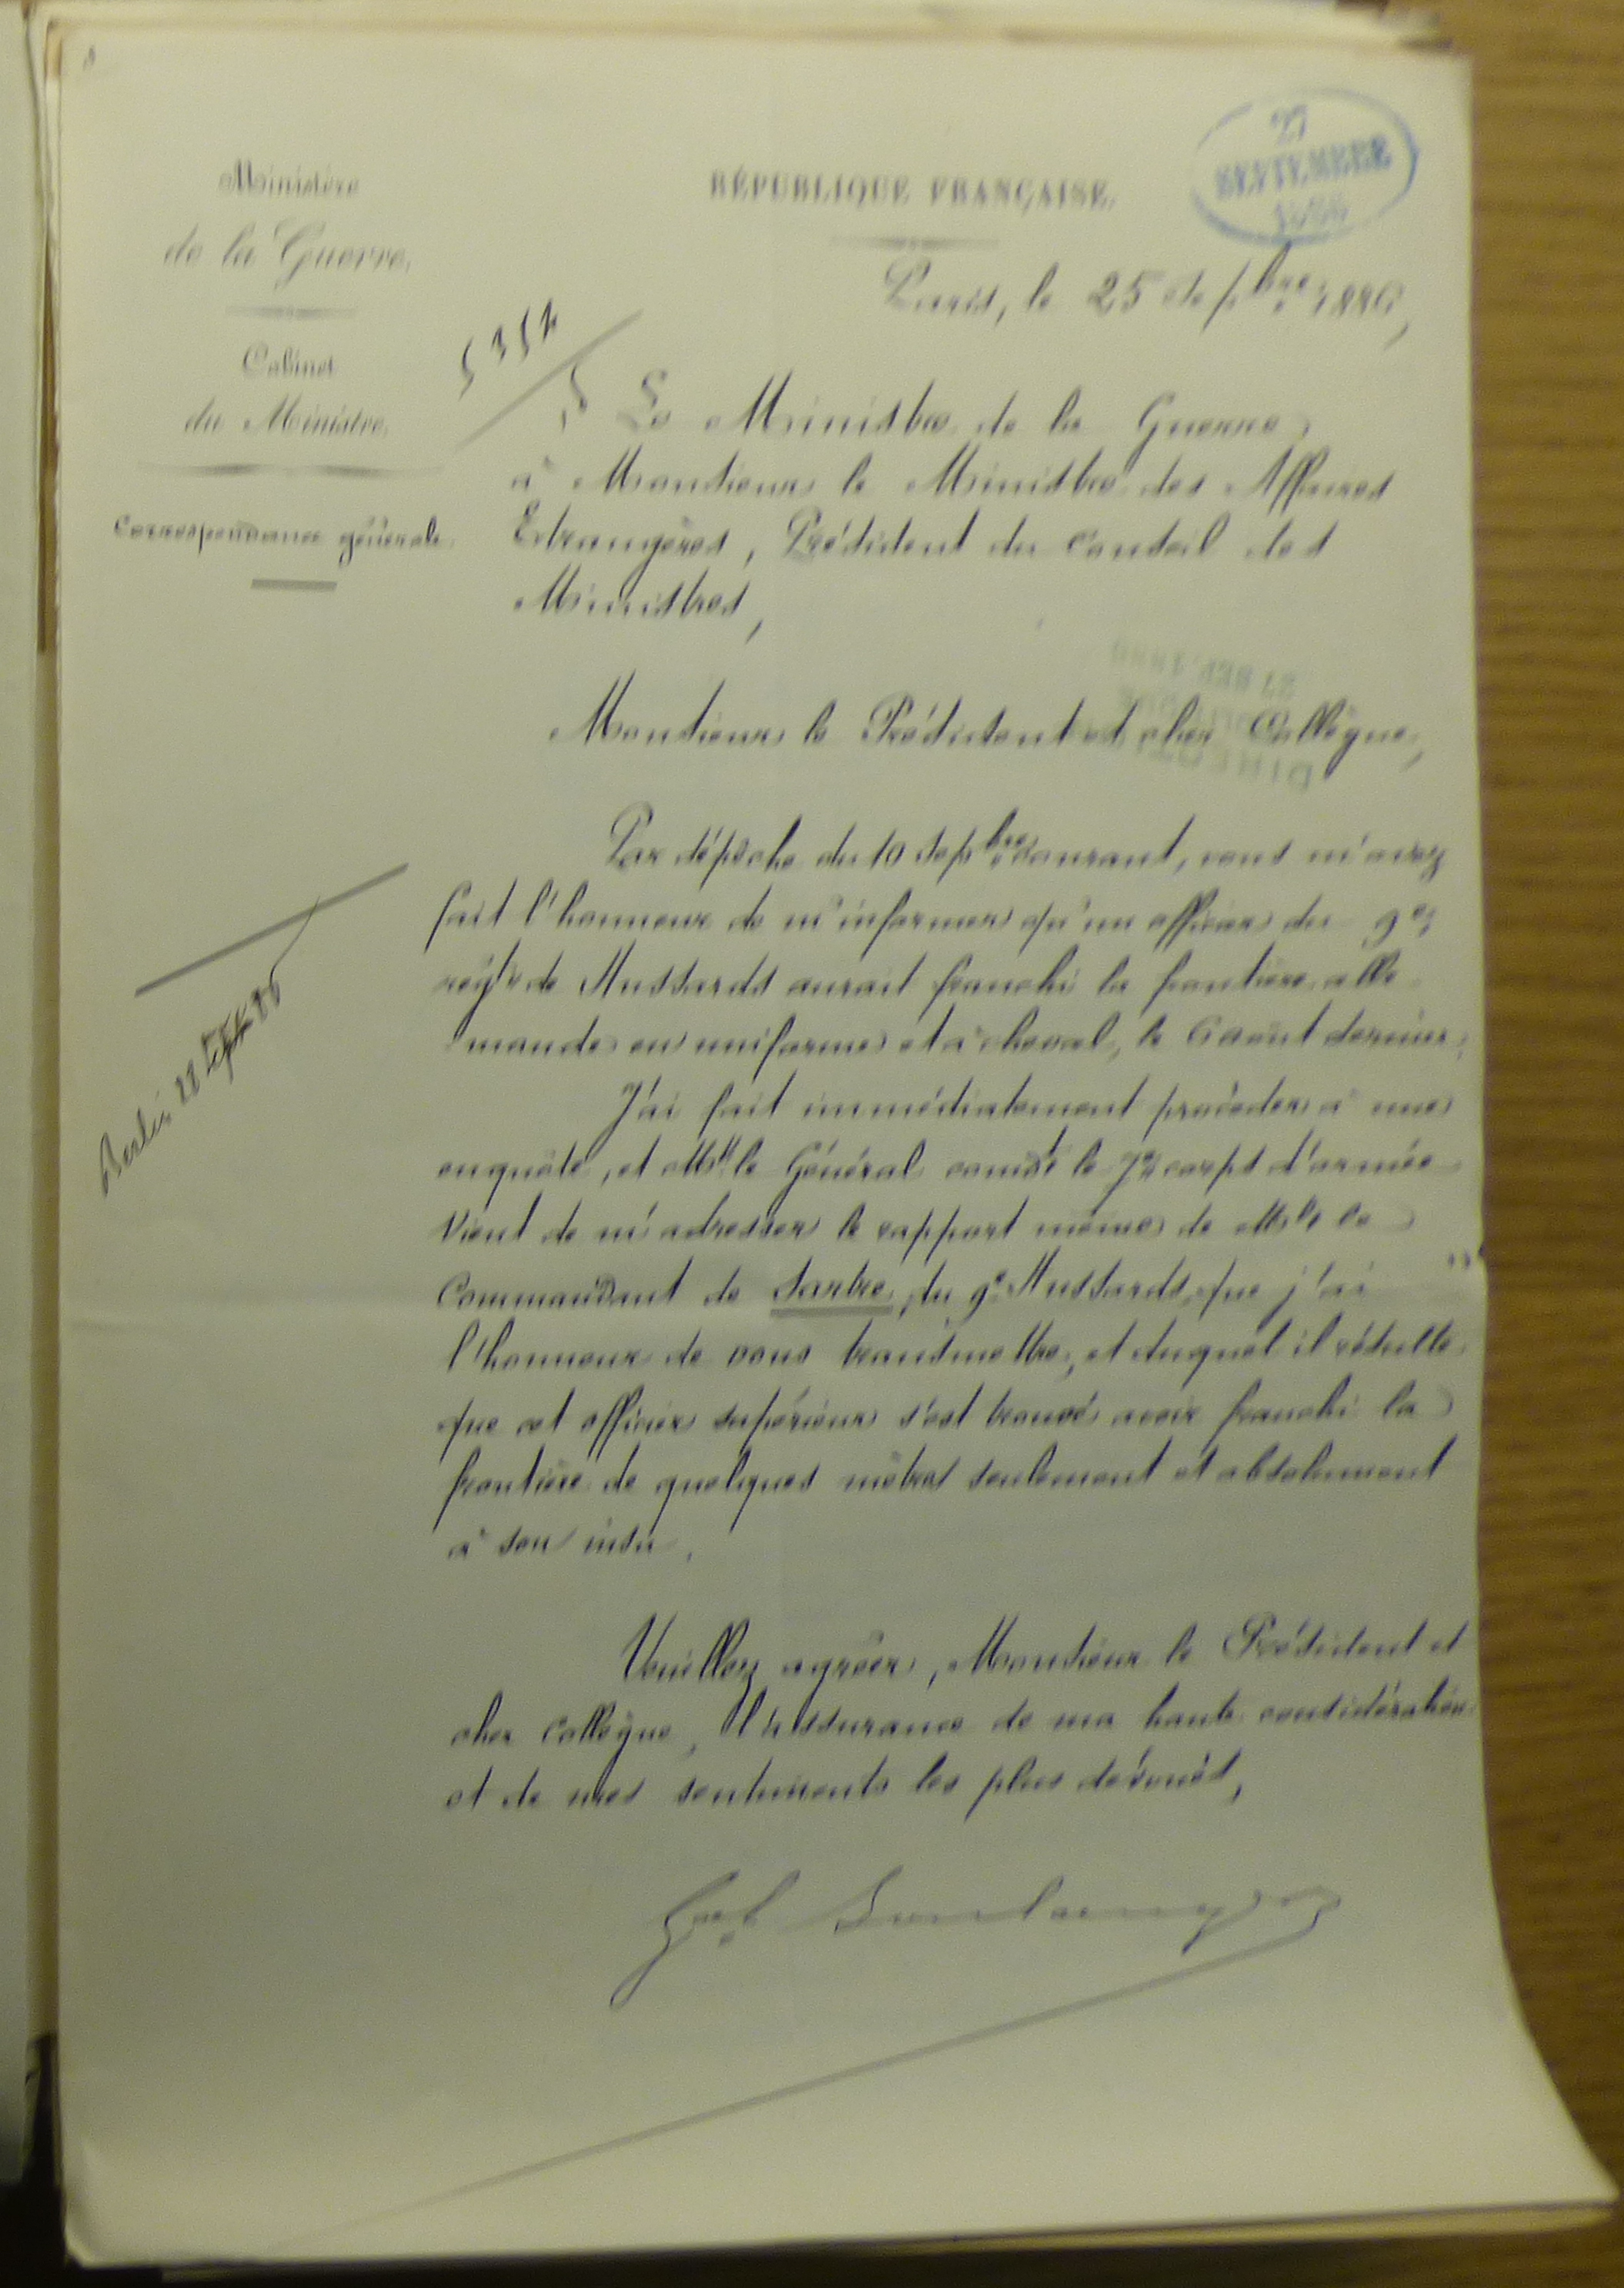 27
SEPTEMBRE
1886
Ministère
de la Guerre.
RÉPUBLIQUE FRANÇAISE.
Cabinet
du Ministre.
Correspondance générale.
Paris, le 25 Sepbre 1886,
Le Ministre de la Guerre
à Monsieur le Ministre des Affaires
Etrangères, Président du Conseil des
Ministres,
27 SEP. 1886
Monsieur le Président et cher Collègue,
Par dépêche du 10 Sepbre courant, vous m'avez
fait l'honneur de m'informer qu'un officier du 9e
régt de Hussards aurait franchi la frontière alle-
mande en uniforme et à cheval, le 6 août dernier.
Berlin
J'ai fait immédiatement procéder à une
enquête, et Mr le Général comdt le 7e corps d'armée
vient de m'adresser le rapport même de Mr le
Commandant de Sartre, du 9e Hussards, que j'ai
l'honneur de vous transmettre, et duquel il résulte
que cet officier supérieur s'est trouvé avoir franchi la
frontière de quelques mètres seulement et absolument
à son insu.
Veuillez agréer, Monsieur le Président et
cher Collègue, l'assurance de ma haute considération
et de mes sentiments les plus dévoués,
Gal Boulanger